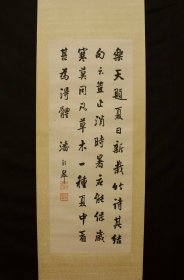 樂天題夏日新栽竹詩其結
句云豈止消時暑應能保歲
寒莫同凡草木一種夏中看
甚為得體　潘齡皋